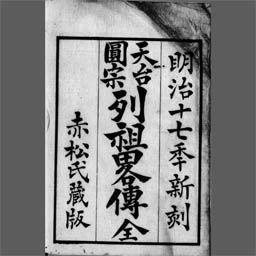 明治十七年新刻
天台
圓宗
列祖畧傳 全
赤松氏藏版